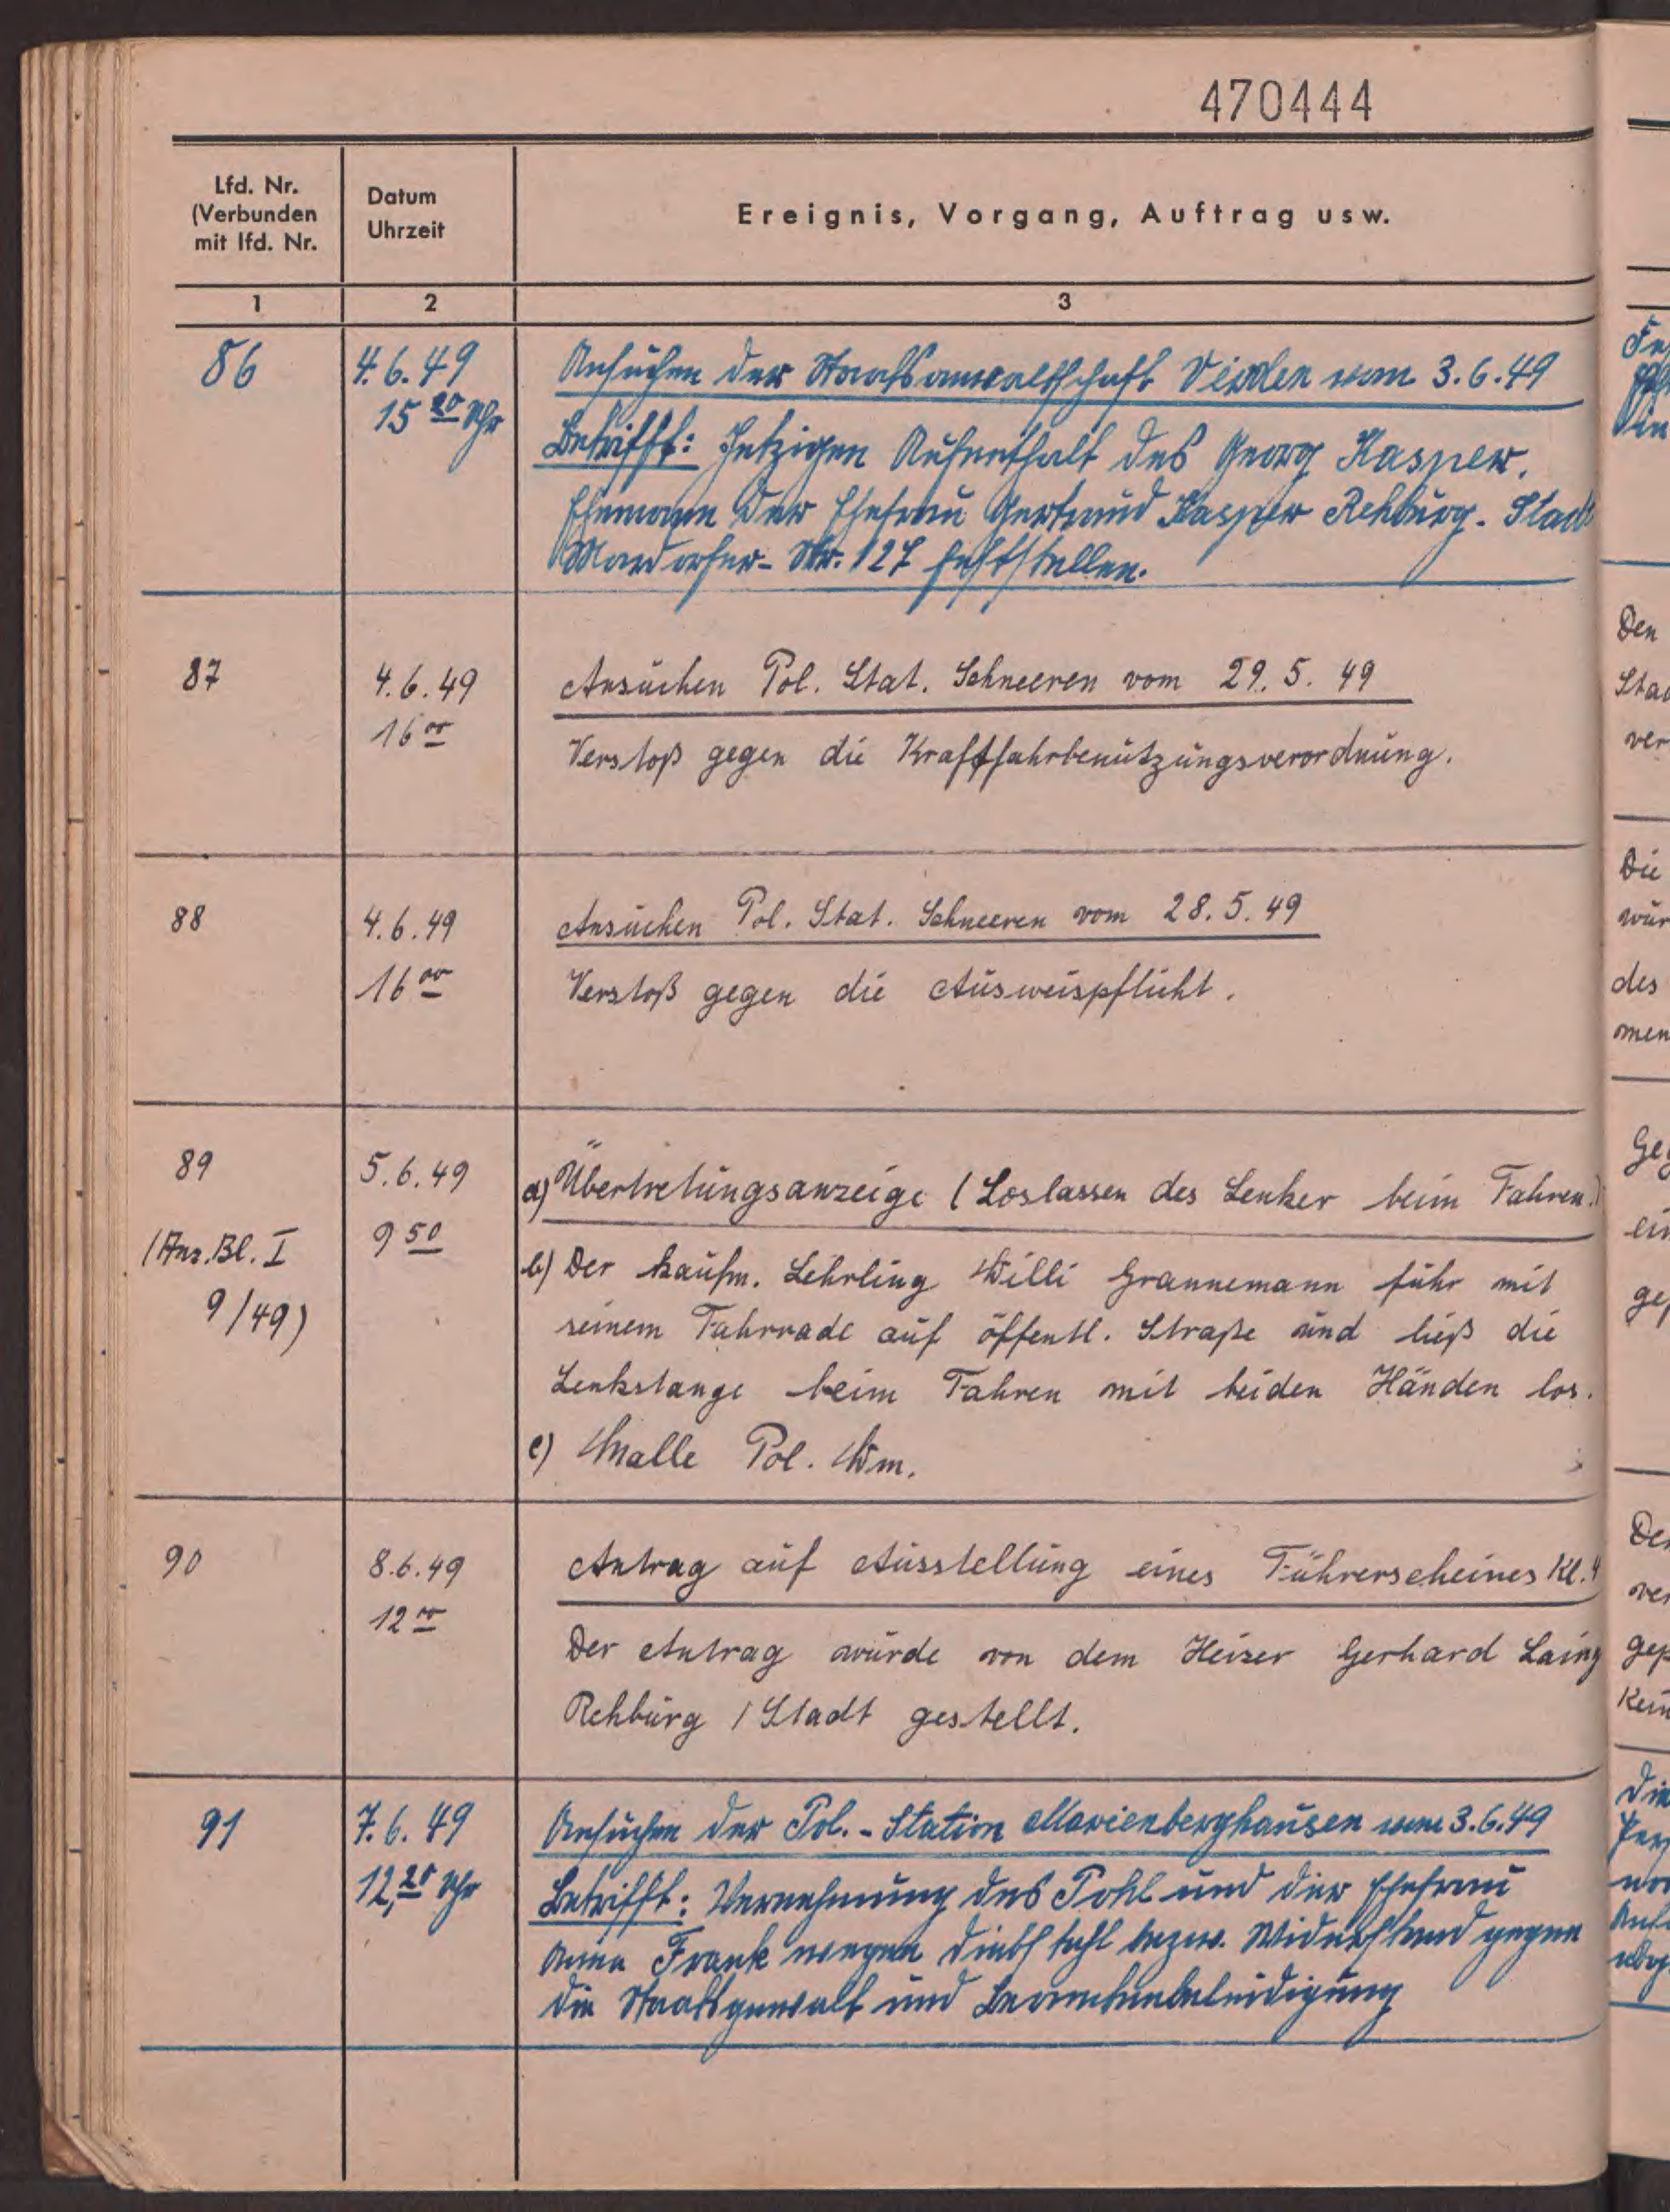 470444
Lfd. Nr.
(Verbunden
mit lfd. Nr.
Datum
Uhrzeit
Ereignis, Vorgang, Auftrag usw.
1 2 3
86 4.6.49 Ansuchen der Staatsanwaltschaft Verden vom 3.6.49
15 20 Uhr Betrifft: Jetzigen Aufenthalt des Georg Kasper,
Ehemann der Ehefrau Gertraud Kasper Rehburg-Stadt
Mardorfer-Str. 127 feststellen.
87 4.6.49 Ansuchen Pol. Stat. Schneeren vom 29.5.49
16 00 Verstoß gegen die Kraftfahrbenutzungsverordnung.
88 4.6.49 Ansuchen Pol. Stat. Schneeren vom 28.5.49
16 00 Verstoß gegen die Ausweispflicht.
89 5.6.49 a) Übertretungsanzeige (Loslassen des Lenker beim Fahren.)
(Anz. Bl. I 9 50 b) Der kaufm. Lehrling Willi Grannemann fuhr mit
9/49) seinem Fahrrade auf öffentl. Straße und ließ die
Lenkstange beim Fahren mit beiden Händen los.
c) Malle Pol. Wm.
90 8.6.49 Antrag auf Ausstellung eines Führerscheines Kl. 4
12 00 Der Antrag wurde von dem Heizer Gerhard Laing
Rehburg / Stadt gestellt.
91 7.6.49 Ansuchen der Pol.-Station Marienberghausen vom 3.6.49
12,20 Uhr Betrifft: Vernehmung des Pohl und der Ehefrau
Anna Frank wegen Diebstahl bezw. Widerstand gegen
die Staatsgewalt und Beamtenbeleidigung
Den
ver
Die
des